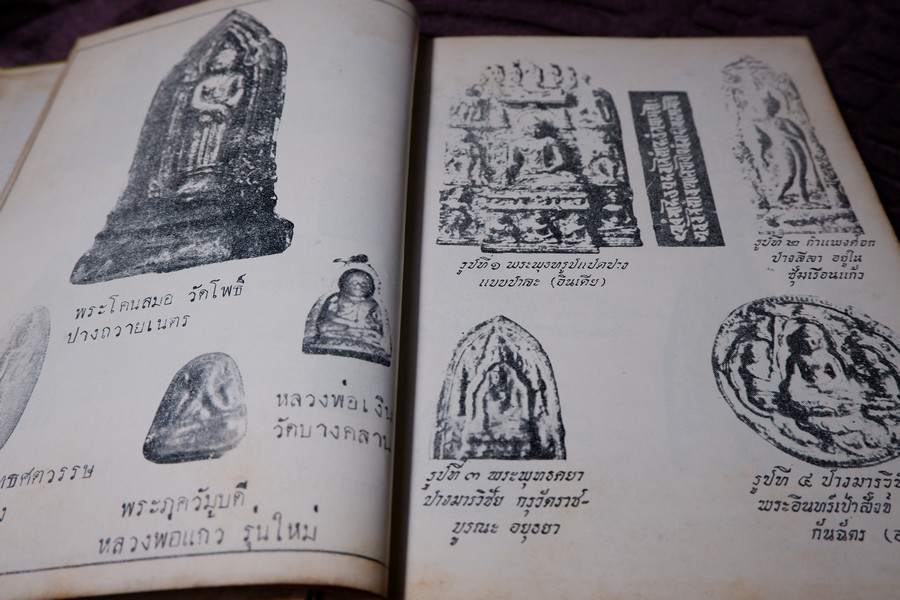 พระโคนสมอ วัดโพธิ์
ปางถวายเนตร
หลวงพ่อเงิน
วัดบางคลาน
ทธศตวรรษ
พระภควัมบดี
หลวงพ่อแก้ว รุ่นใหม่
รูปที่ ๑ พระพุทธรูปแปดปาง
แบบปาละ (อินเดีย)
รูปที่ ๒ กำแพงศอก
ปางลีลา อยู่ใน
ซุ้มเรือนแก้ว
รูปที่ ๓ พระพุทธคยา
ปางมารวิชัย กรุวัดราช-
บูรณะ อยุธยา
รูปที่ ๔ ปางมารวิช
พระอินทร์เป่าสังข์
กั้นฉัตร